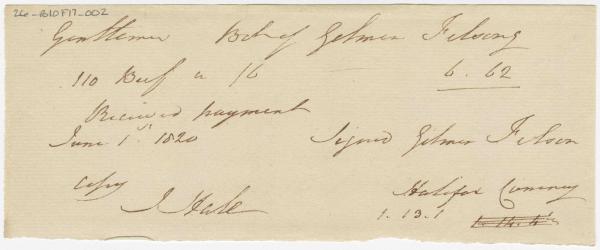 26-B10F17-002
Gentlemen Bot of Gilman Folsong
110 Beef a /6 6.62
Recieved payment
June 1st 1820 Signed Gilman Folson
copy
J Hale Halifax Currency
1.13.1